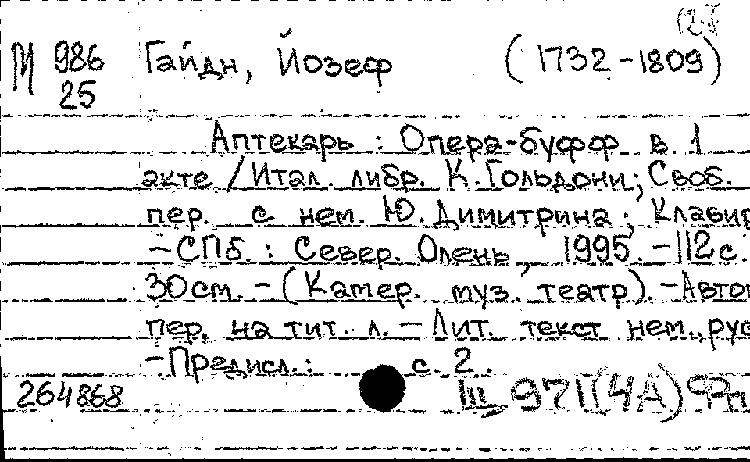 (2)
М 986 Гайдн, Йозеф (1732-1809)
25
Аптекарь : Опера-буфф в 1
акте / Итал. либр. К. Гольдони; Своб.
пер. с нем. Ю. Димитрина; Клавир
-СПб. : Север. Олень, 1995. -112 с.
30 см. - (Камер. муз. театр). -Автор
пер. на тит. л. - Лит. текст нем., рус
-Предисл.: с. 2.
264868 Ш 971(4А)